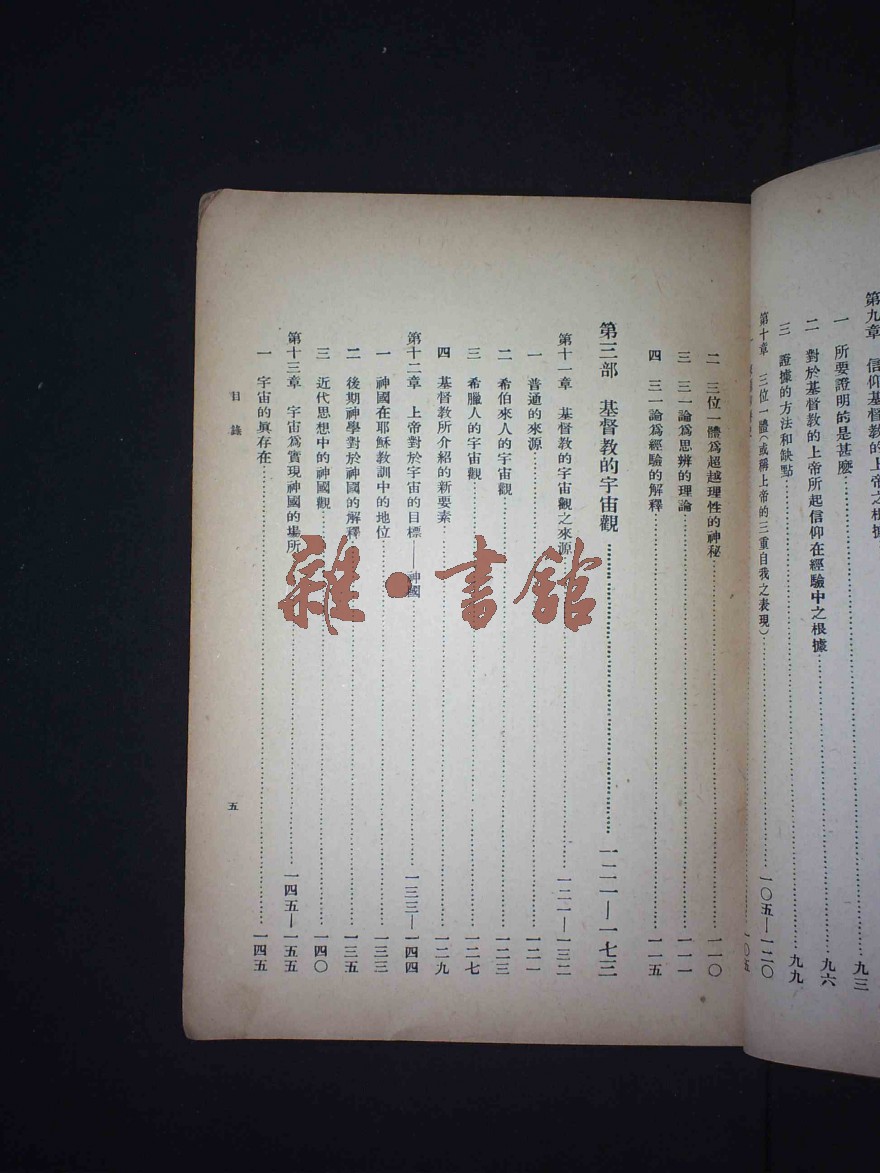 第九章　信仰基督教的上帝之根據
一　所要證明的是甚麼……九三
二　對於基督教的上帝所起信仰在經驗中之根據……九六
三　證據的方法和缺點……九九
第十章　三位一體（或稱上帝的三重自我之表現）……一〇五—一二〇
一……一〇五
二　三位一體爲超越理性的神秘……一一〇
三　三一論爲思辨的理論……一一一
四　三一論爲經驗的解釋……一一五
第三部　基督教的宇宙觀……一二一—一七三
第十一章　基督教的宇宙觀之來源……一二一—一三二
一　普通的來源……一二一
二　希伯來人的宇宙觀……一二三
三　希臘人的宇宙觀……一二七
四　基督教所介紹的新要素……一二九
第十二章　上帝對於宇宙的目標——神國……一三三—一四四
一　神國在耶穌教訓中的地位……一三三
二　後期神學對於神國的解釋……一三五
三　近代思想中的神國觀……一四〇
第十三章　宇宙爲實現神國的場所……一四五—一五五
一　宇宙的眞存在……一四五
目錄
五
雜·書館